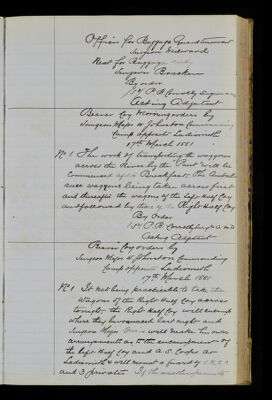 Officer for Baggage Guard tomorrow
Surgeon Wedward
Next for Baggage duty
Surgeon Bracken
By order
P B Connolly Surgeon
Acting Adjutant
Bearer Coy Morning orders by
Surgeon Major W Johnston Commanding
Camp opposite Ladysmith
17th March 1881
No 1 The work of transporting the waggons
across the River by the Pont will be
commenced after Breakfast. The Ambul
ance waggons being taken across first
and thereafter the wagons of the left Half Coy
and followed by those of the Right Half Coy
By Order
P B Connolly Surg A.M.D
Acting Adjutant
Bearer Coy orders by
Surgeon Major W Johnston Commanding
Camp opposite Ladysmith
17th March 1881
No 1 It not being practicable to take the
Wagons of the Right Half Coy across
tonight the Right Half Coy will encamp
where they bivouaced last night and
Surgeon Major will make his own
arrangements as to the encampment of
the left Half Coy and A.S. Corps at
Ladysmith & will mount a guard of 1 N.C.O
and 3 privates. If the weather permits